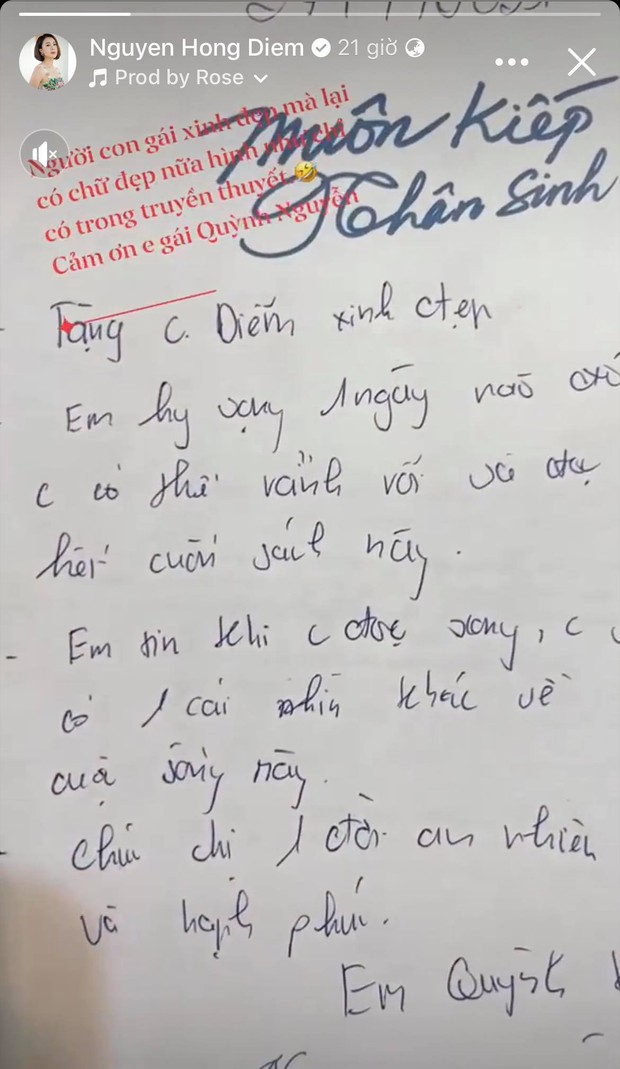 Nguyen Hong Diem 21 giờ
Prod by Rose
Muôn Kiếp
Nhân Sinh
Người con gái xinh đẹp mà lại
có chữ đẹp nữa hình như chỉ
có trong truyền thuyết 🤣
Cảm ơn e gái Quỳnh Nguyễn
Tặng c. Diễm xinh đẹp
Em hy vọng 1 ngày nào đó
c có thể rảnh rỗi và đọc
hết cuốn sách này.
- Em tin khi c đọc xong, c
có 1 cái nhìn khác về
cuộc sống này.
- Chúc chị 1 đời an nhiên
và hạnh phúc.
Em Quỳnh